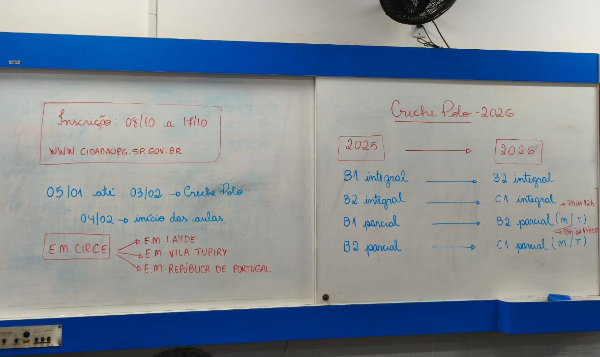 Inscrição: 08/10 a 17/10
WWW.CIDADAOPG.SP.GOV.BR
05/01 até 03/02 → Creche Polo
04/02 → início das aulas
E.M CIRCE → E.M LAYDE
→ E.M VILA TUPIRY
→ E.M. REPÚBLICA DE PORTUGAL
Creche Polo - 2026
2025 → 2026
B1 integral → B2 integral
B2 integral → C1 integral
B1 parcial → B2 parcial (M/T)
B2 parcial → C1 parcial (M/T)